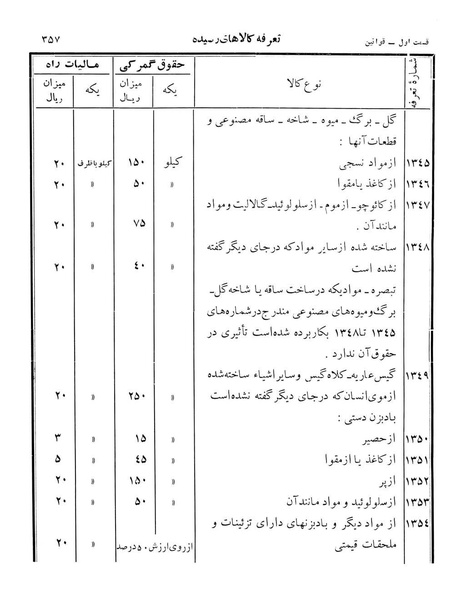 قسمت اول ـ قوانین    تعرفه کالاهای رسیده    ۳۵۷
شمارهٔ تعرفه    نوع کالا    حقوق گمرکی    مالیات راه
یکه    میزان ریال    یکه    میزان ریال
گل ـ برگ ـ میوه ـ شاخه ـ ساقه مصنوعی و
قطعات آنها :
۱۳٤٥    از مواد نسجی    کیلو    ۱۵۰    کیلو باظرف    ۲۰
۱۳٤٦    از کاغذ یا مقوا    »    ۵۰    »    ۲۰
۱۳٤۷    از کائوچو ـ ازموم ـ ازسلولوئید ـ گالالیت ومواد
مانند آن .    »    ۷۵    »    ۲۰
۱۳٤۸    ساخته شده از سایر مواد که درجای دیگر گفته
نشده است    »    ٤۰    »    ۲۰
تبصره ـ موادیکه درساخت ساقه یا شاخه گل ـ
برگ و میوه‌های مصنوعی مندرج در شماره‌های
۱۳٤٥ تا ۱۳٤۸ بکار برده شده است تأثیری در
حقوق آن ندارد .
۱۳٤۹    گیس عاریه ـ کلاه گیس و سایر اشیاء ساخته شده
از موی انسان که درجای دیگر گفته نشده است    »    ۲۵۰    »    ۲۰
بادبزن دستی :
۱۳۵۰    از حصیر    »    ۱۵    »    ۳
۱۳۵۱    از کاغذ یا از مقوا    »    ٤٥    »    ۵
۱۳۵۲    از پر    »    ۱۵۰    »    ۲۰
۱۳۵۳    از سلولوئید و مواد مانند آن    »    ۵۰    »    ۲۰
۱۳۵٤    از مواد دیگر و بادبزنهای دارای تزئینات و
ملحقات قیمتی    از روی ارزش ۵۰ درصد    »    ۲۰